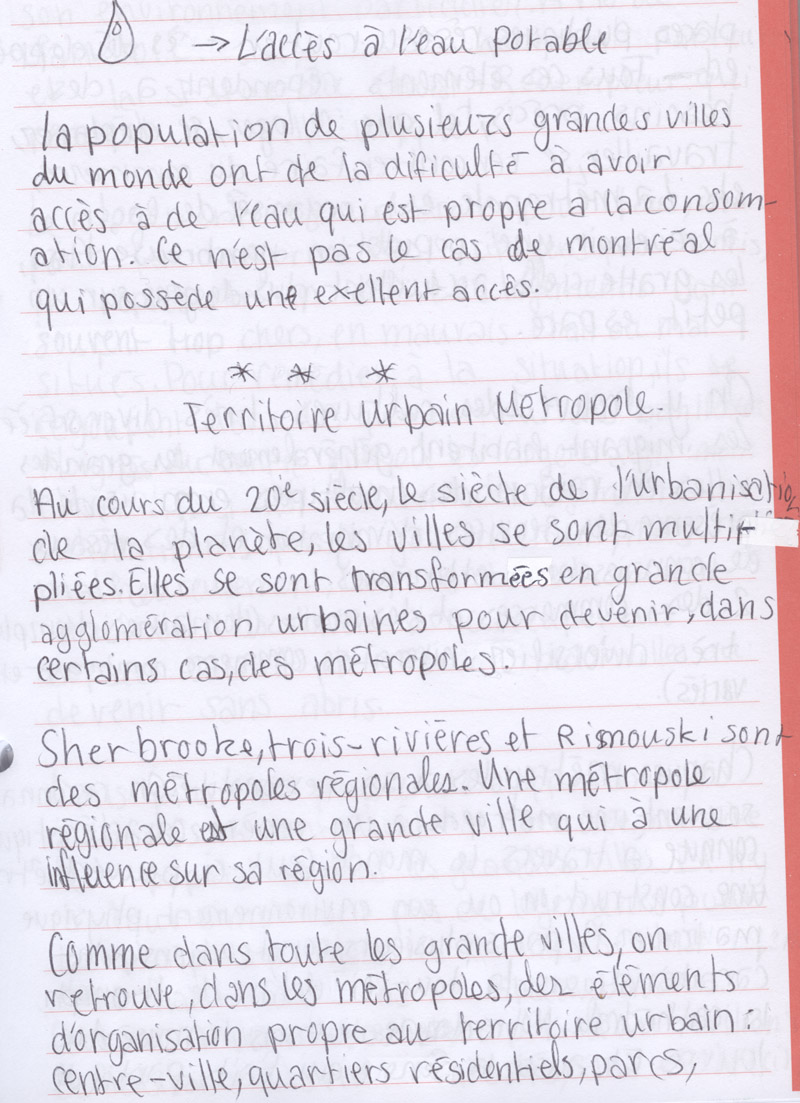 → L'accès à l'eau potable
La population de plusieurs grandes villes
du monde ont de la dificulté à avoir
accès à de l'eau qui est propre à la consom-
ation. Ce n'est pas le cas de montréal
qui possède une exellent accès.
* * *
Territoire Urbain Métropole.
Au cours du 20ie siècle, le siècle de l'urbanisation
de la planète, les villes se sont multi-
pliées. Elles se sont transformées en grande
agglomération urbaines pour devenir, dans
certains cas, des métropoles.
Sherbrooke, trois-rivières et Rismouski sont
des métropoles régionales. Une métropole
régionale est une grande ville qui à une
influence sur sa région.
Comme dans toute les grande villes, on
retrouve, dans les métropoles, des éléments
d'organisation propre au territoire urbain:
centre-ville, quartiers résidentiels, parcs,